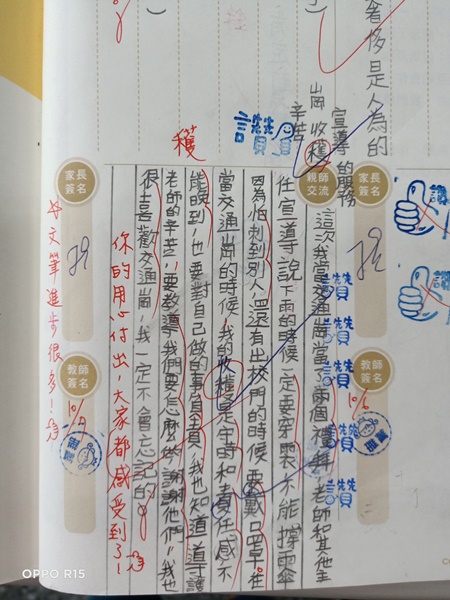 奢侈是人為的
宣導的服務
崗 收穫
辛苦
讚
穫
家長簽名
教師簽名
10/6
親師交流
這次我當交通崗當了兩個禮拜,老師和其他主
任宣導說下雨的時候一定要穿雨衣不能撐雨傘
因為怕刺到別人,還有出校門的時候要戴口罩。在
當交通崗的時候,我的收穫是準時和責任感不
能晚到,也要對自己做的事負責,我也知道導護
老師的辛苦,要教導我們要怎麼做,謝謝他們,我也
很喜歡交通崗,我一定不會忘記的。
讚
讚
讚
讚
讚
你的用心付出,大家都感受到了!
家長簽名
教師簽名
文筆進步很多!
OPPO R15